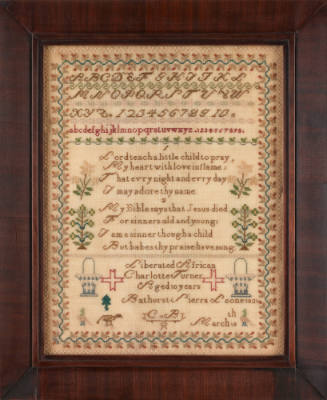 ABCDEFGHIJKL
MNOPQRSTUVW
XYZ. 12345678910.
abcdefghijklmnopqrstuvwxyz. 123456789.
1
Lord teach a little child to pray,
My heart with love inflame
That every night and every day
I may adore thy name
2
My Bible says that Jesus died
For sinners old and young:
I am a sinner though a child
But babes thy praise have sung
Liberated African
Charlotte Turner
Aged 10 years
Bathurst Sierra Leone
th
C B March